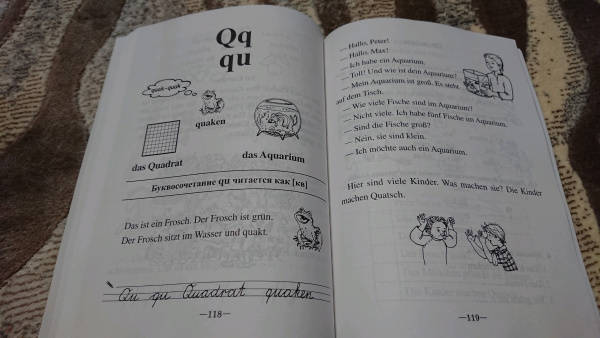 Qq
qu
quak-quak
quaken
das Quadrat
das Aquarium
Буквосочетание qu читается как [кв]
Das ist ein Frosch. Der Frosch ist grün.
Der Frosch sitzt im Wasser und quakt.
Qu qu Quadrat quaken
—118—
— Hallo, Peter!
— Hallo, Max!
— Ich habe ein Aquarium.
— Toll! Und wie ist dein Aquarium?
— Mein Aquarium ist groß. Es steht
auf dem Tisch.
— Wie viele Fische sind im Aquarium?
— Nicht viele. Ich habe fünf Fische im Aquarium.
— Sind die Fische groß?
— Nein, sie sind klein.
— Ich möchte auch ein Aquarium.
Hier sind viele Kinder. Was machen sie? Die Kinder
machen Quatsch.
—119—